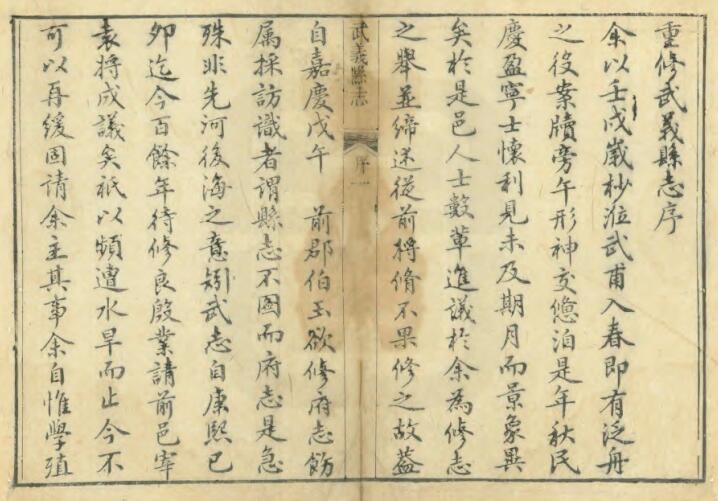 重修武義縣志序
余以壬戌嵗杪涖武甫入春即有泛舟
之役案牘旁午形神交憊洎是年秋民
慶盈寧士懷利見未及期月而景象異
矣於是邑人士數輩進議於余為修志
之舉並締述從前將脩不果修之故葢
武義縣志
序
一
自嘉慶戊午 前郡伯玉欲修府志飭
属採訪識者謂縣志不圖而府志是急
殊非先河後海之意矧武志自康熙已
夘迄今百餘年待修良殷業請前邑宰
袁將成議矣祇以頻遭水旱而止今不
可以再緩固請余主其事余自惟學殖